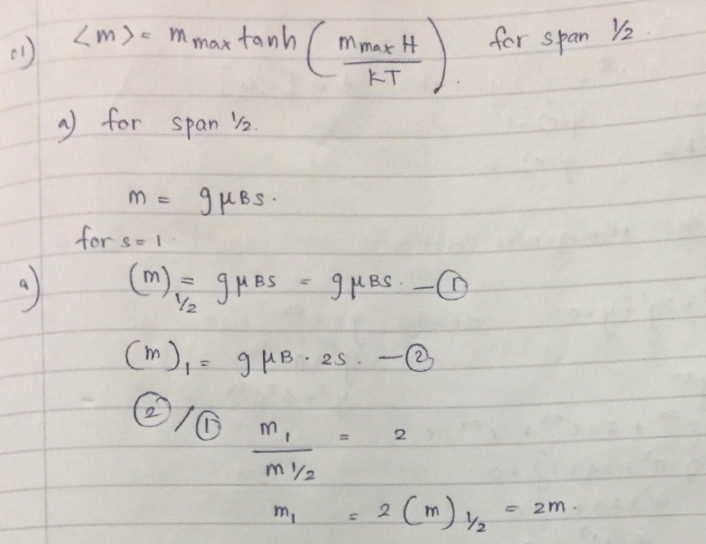 c1) <m> = m max tanh ( m max H / KT ) for span 1/2
a) for span 1/2.
m = gμBS.
for s = 1.
a) (m)1/2 = gμBS = gμBS. — ①
(m)1 = gμB . 2S. — ②
②/① m1 / m1/2 = 2
m1 = 2 (m)1/2 = 2m.